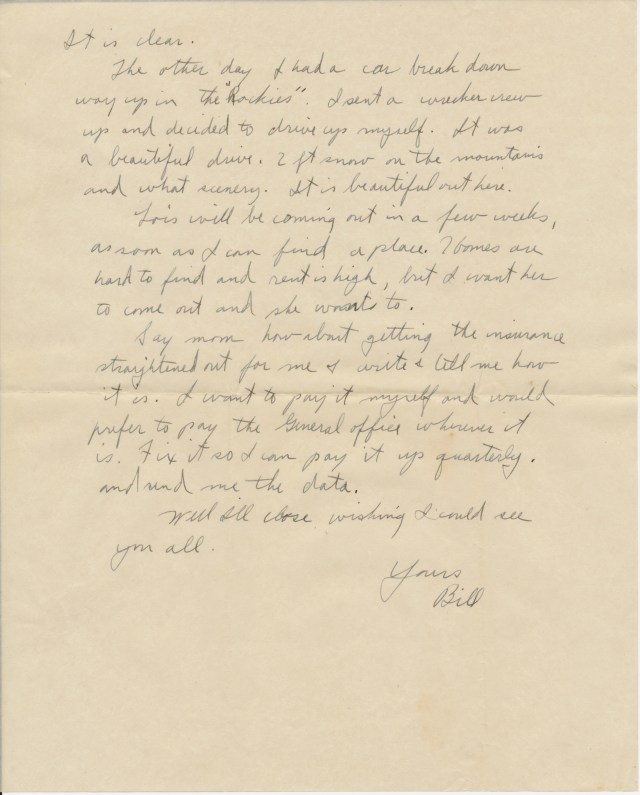 It is clear.
The other day I had a car break down
way up in the "Rockies". I sent a wrecker crew
up and decided to drive up myself. It was
a beautiful drive. 2 ft snow on the mountains
and what scenery. It is beautiful out here.
Lois will be coming out in a few weeks,
as soon as I can find a place. Homes are
hard to find and rent is high, but I want her
to come out and she wants to.
Say mom how about getting the insurance
straightened out for me & write & tell me how
it is. I want to pay it myself and would
prefer to pay the General office wherever it
is. Fix it so I can pay it up quarterly.
and send me the data.
Well I'll close wishing I could see
you all.
Yours
Bill